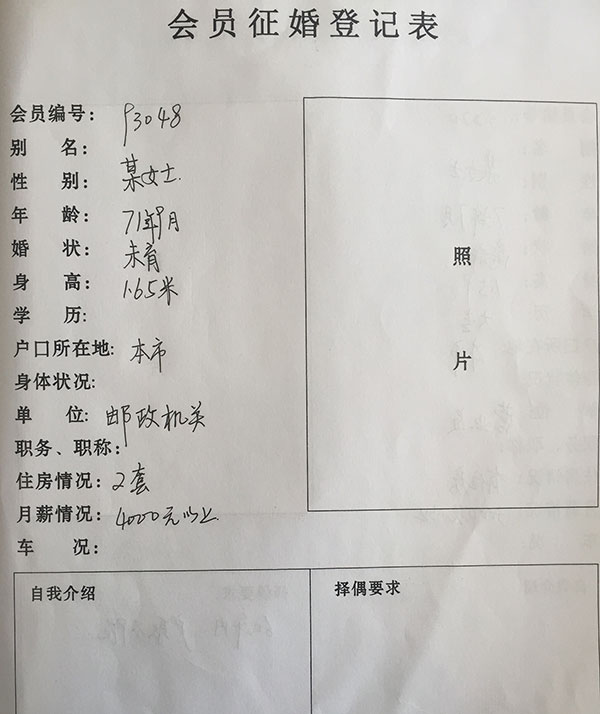 会员征婚登记表
会员编号: 93048
别 名:
性 别: 某女士.
年 龄: 71年9月
婚 状: 未育
身 高: 1.65米
学 历:
户口所在地: 本市
身体状况:
单 位: 邮政机关
职务、职称:
住房情况: 2套
月薪情况: 4000元以上.
车 况:
照
片
自我介绍
择偶要求